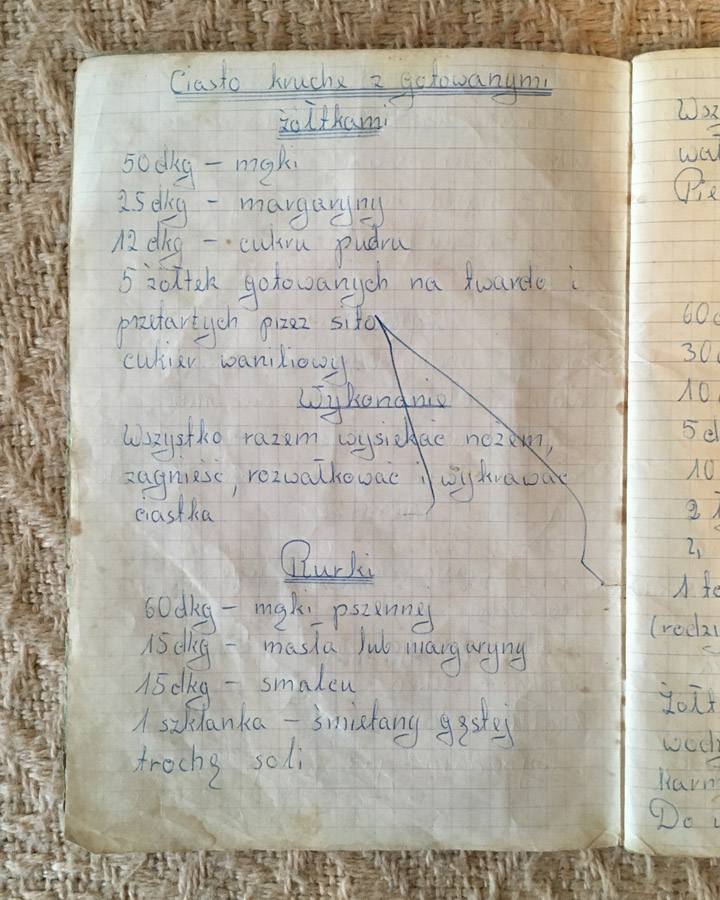 Ciasto kruche z gotowanymi
żółtkami
50 dkg – mąki
25 dkg – margaryny
12 dkg – cukru pudru
5 żółtek gotowanych na twardo i
przetartych przez sito
cukier waniliowy
Wykonanie
Wszystko razem wysiekać nożem,
zagnieść, rozwałkować i wykrawać
ciastka
Rurki
60 dkg – mąki pszennej
15 dkg – masła lub margaryny
15 dkg – smalcu
1 szklanka – śmietany gęstej
trochę soli
60
30
10
5 d
10
2
2,
1
Do